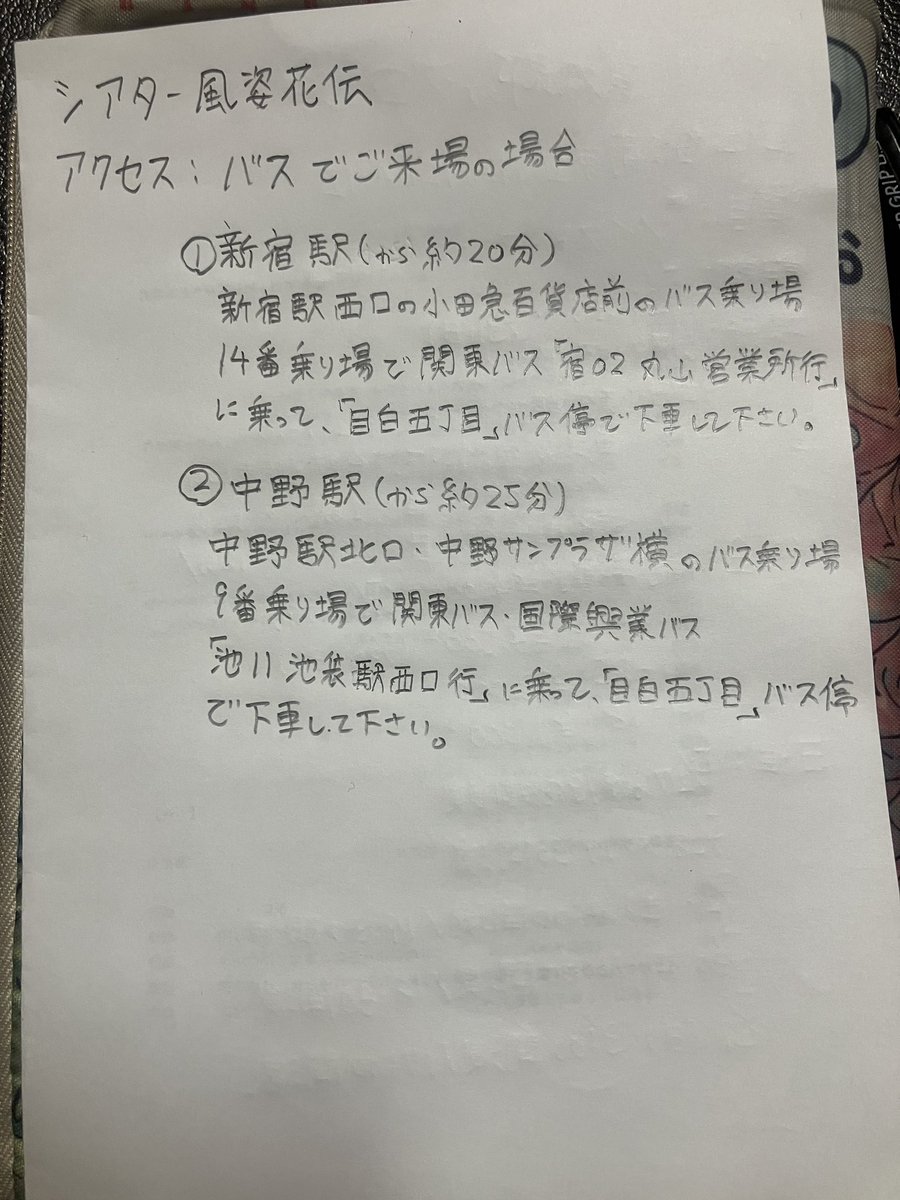 シアター風姿花伝
アクセス：バスでご来場の場合
①新宿駅(から約20分)
新宿駅西口の小田急百貨店前のバス乗り場
14番乗り場で関東バス「宿02 丸山営業所行」
に乗って、「目白五丁目」バス停で下車して下さい。
②中野駅(から約25分)
中野駅北口・中野サンプラザ横のバス乗り場
9番乗り場で関東バス・国際興業バス
「池11 池袋駅西口行」に乗って、「目白五丁目」バス停
で下車して下さい。
GRIP